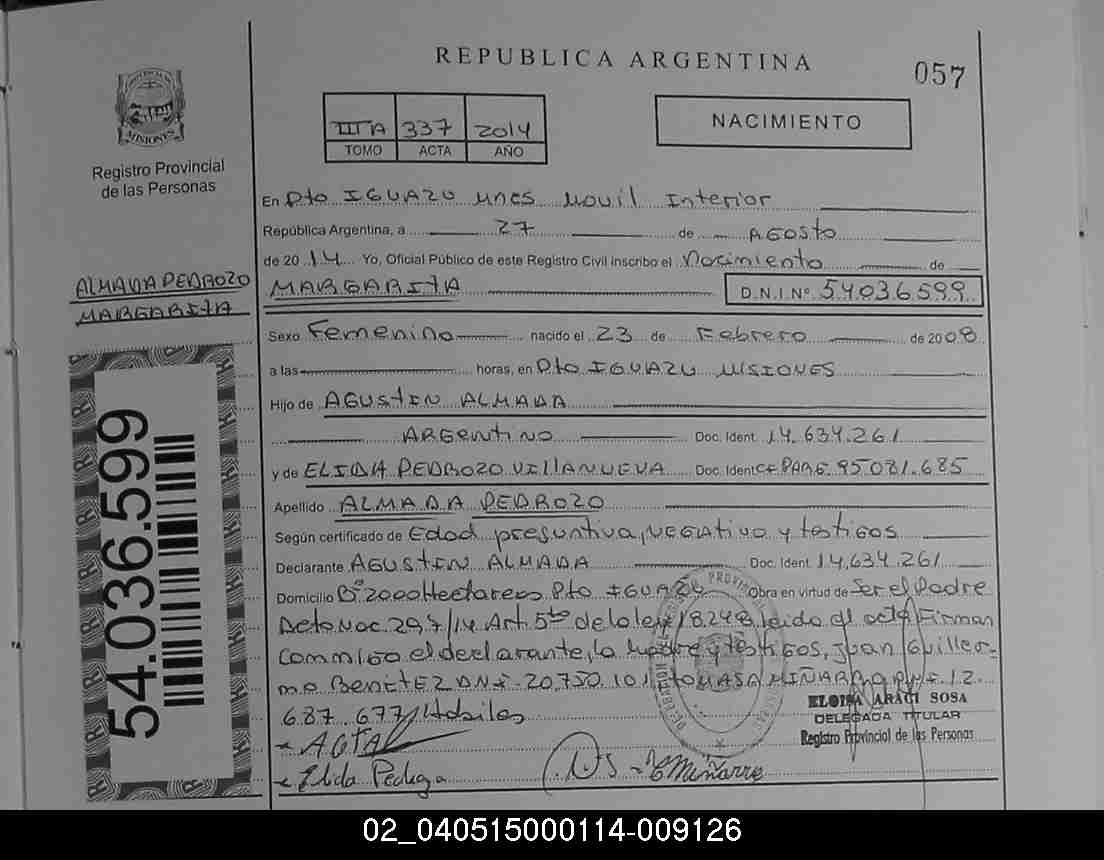 REPUBLICA ARGENTINA
057
PROVINCIA DE
MISIONES
Registro Provincial
de las Personas
IIIA 337 2014
TOMO ACTA AÑO
NACIMIENTO
En Pto IGUAZU UNES MOVIL Interior
República Argentina, a 27 de AGOSTO
de 2014 Yo, Oficial Público de este Registro Civil inscribo el Nacimiento de
ALMADA PEDROZO
MARGARITA
MARGARITA D.N.I.Nº 54036599
Sexo Femenino nacido el 23 de Febrero de 2008
a las horas, en Pto IGUAZU MISIONES
Hijo de AGUSTIN ALMADA
ARGENTINO Doc. Ident. 14.634.261
y de ELIDA PEDROZO VILLANUEVA Doc. Ident CI PARG 95081.685
Apellido ALMADA PEDROZO
Según certificado de Edad presuntiva, NEGATIVO y testigos
Declarante AGUSTIN ALMADA Doc. Ident 14,634.261
Domicilio Bº 2000 Hectareas Pto IGUAZU Obra en virtud de Ser el Padre
Deto Nac. 297/14 Art. 5to de la ley 18.248 leido el acta Firman
Conmigo el declarante, la Madre y testigos, Juan Guiller-
mo BENITEZ DNI 20.750.101 TOMASA MIÑARRO DNI 12.
687.677 Habiles
54.036.599
ELOISA ARACI SOSA
DELEGADA TITULAR
Registro Provincial de las Personas
AGTAL
Elida Pedroza
TMiñarro
02_040515000114-009126